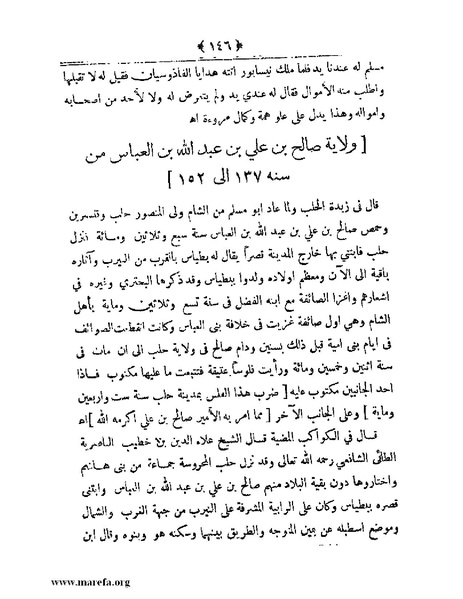 ﴿ ١٤٦ ﴾
مسلم له عندنا يد فلما ملك نيسابور اتته هدايا الفاذوسيان فقيل له لا تقبلها
واطلب منه الأموال فقال له عندي يد ولم يتعرض له ولا لأحد من اصحابه
وامواله وهذا يدل على علو همة وكمال مروءة اه
[ ولاية صالح بن علي بن عبد الله بن العباس من
سنه ١٣٧ الى ١٥٢ ]
قال فى زبدة الحلب ولما عاد ابو مسلم من الشام ولى المنصور حلب وقنسرين
وحمص صالح بن علي بن عبد الله بن العباس سنة سبع وثلاثين ومائة نزل
حلب فابتني بها خارج المدينة قصراً يقال له بطياس بالقرب من النيرب وآثاره
باقية الى الآن ومعظم اولاده ولدوا ببطياس وقد ذكرها البحتري وغيره فى
اشعارهم واغزا الصائفة مع ابنه الفضل فى سنة تسع وثلاثين وماية بأهل
الشام وهي اول صائفة غزيت فى خلافة بنى العباس وكانت انقطعت الصوائف
فى ايام بنى امية قبل ذلك بسنين ودام صالح فى ولاية حلب الى ان مات فى
سنة اثنين وخمسين ومائة ورأيت فلوساً عتيقة فتتبعت ما عليها مكتوب فاذا
احد الجانبين مكتوب عليه [ ضرب هذا الفلس بمدينة حلب سنة ست واربعين
وماية ] وعلى الجانب الآخر [ مما امر به الأمير صالح بن علي اكرمه الله ] اه
قال فى الكواكب المضية قال الشيخ علاء الدين بن خطيب الناصرية
الطائى الشافعي رحمه الله تعالى وقد نزل حلب المحروسة جماعة من بنى هاشم
واختاروها دون بقية البلاد منهم صالح بن علي بن عبد الله بن العباس وابتنى
قصره ببطياس وكان على الرابية المشرفة على النيرب من جهة الغرب والشمال
وموضع اسطبله عن يمين المتوجه والطريق بينهما وسكنه هو وبنوه وقال ابن
www.marefa.org